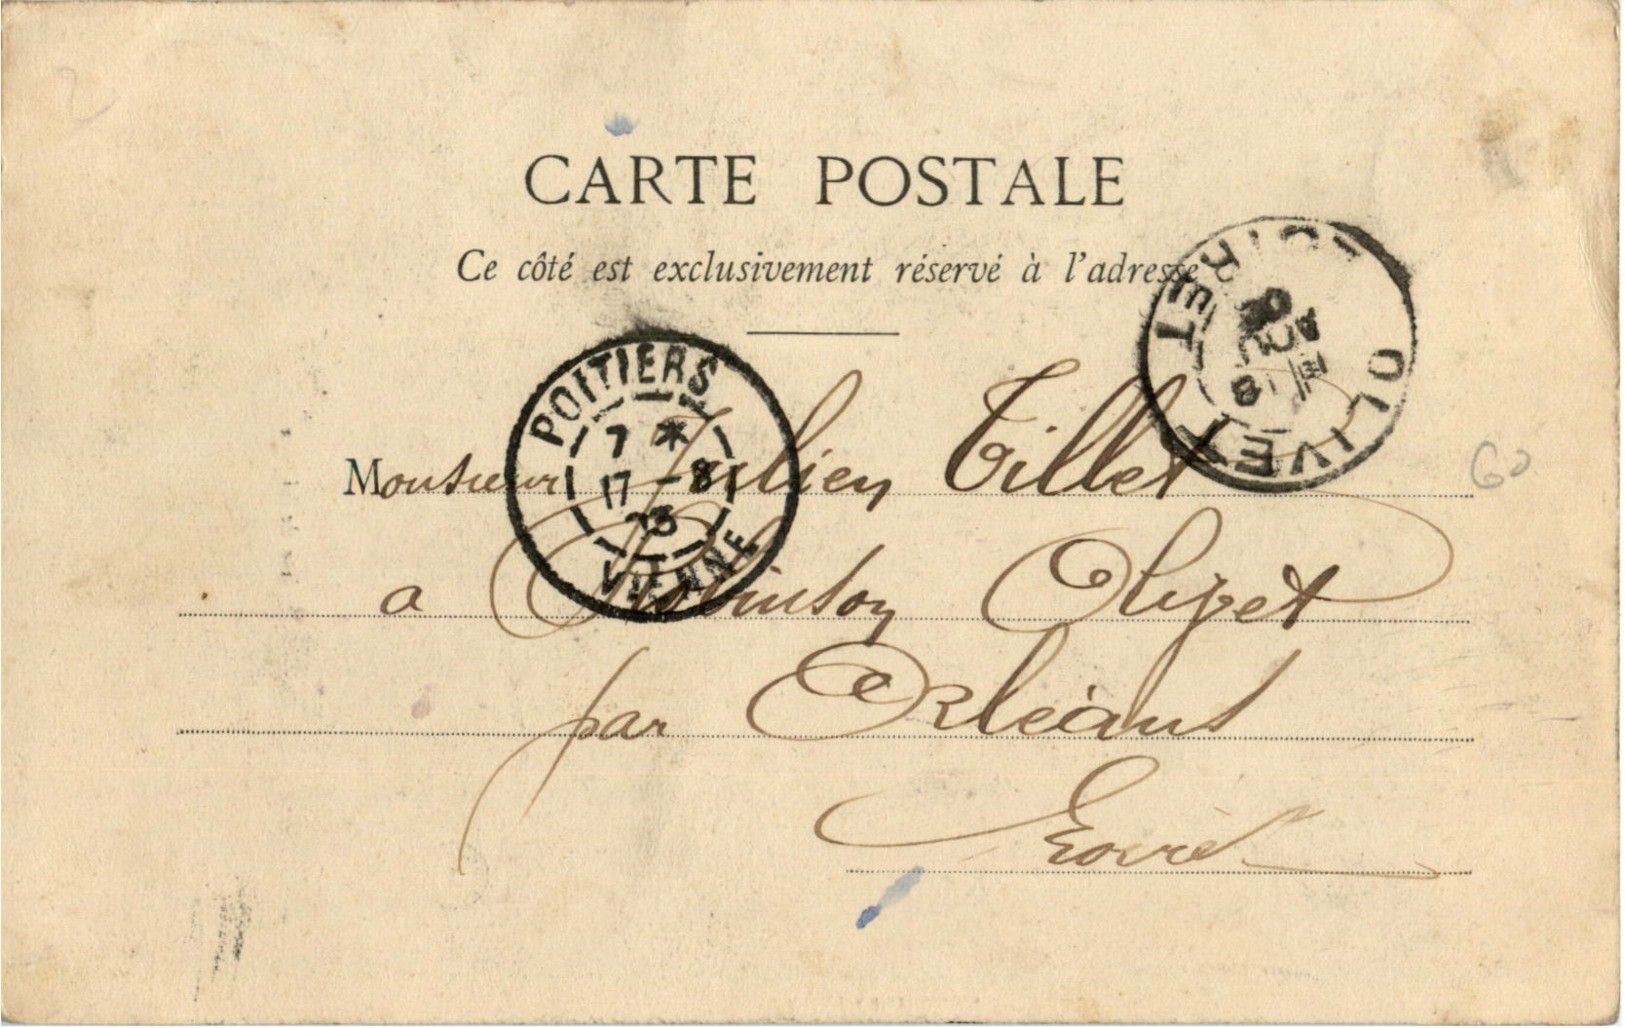 CARTE POSTALE
Ce côté est exclusivement réservé à l'adresse
POITIERS
7 *
17 - 8
03
VIENNE
OLIVET
LOIRET
Monsieur Julien Tillet
a Robinson Olivet
par Orléans
Loiret
60
2